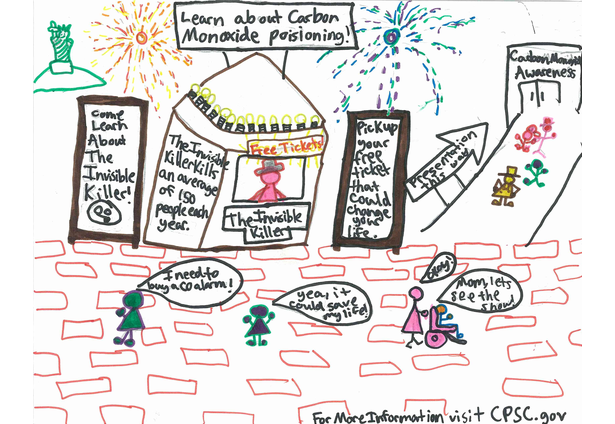 Learn about Carbon
Monoxide poisioning!
Come
Learn
About
The
Invisible
Killer!
The Invisible
Killer Kills
an average
of 150
people each
year.
Free Tickets!
The Invisible
Killer
Pick up
your
free
ticket
that
could
change
your
life.
Presentation
this way
Carbon Monoxide
Awareness
I need to
buy a co alarm!
yea, it
could save
my life!
Okay!
Mom, lets
see the
show!
For More Information visit CPSC.gov